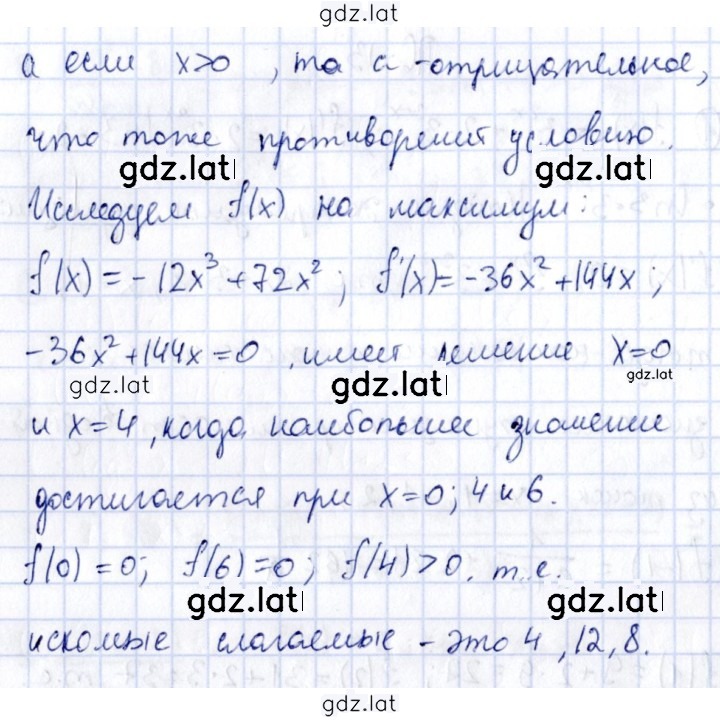 gdz.lat
а если x>0, то a - отрицательное,
что тоже противоречит условию.
gdz.lat gdz.lat
Исследуем f(x) на максимум:
f(x) = -12x³ + 72x²; f'(x) = -36x² + 144x;
-36x² + 144x = 0, имеет решение x=0
gdz.lat gdz.lat gdz.lat
и x=4, когда наибольшее значение
достигается при x=0; 4 и 6.
f(0) = 0; f(6) = 0; f(4) > 0. т.е.
gdz.lat gdz.lat
искомые слагаемые - это 4, 12, 8.
gdz.lat